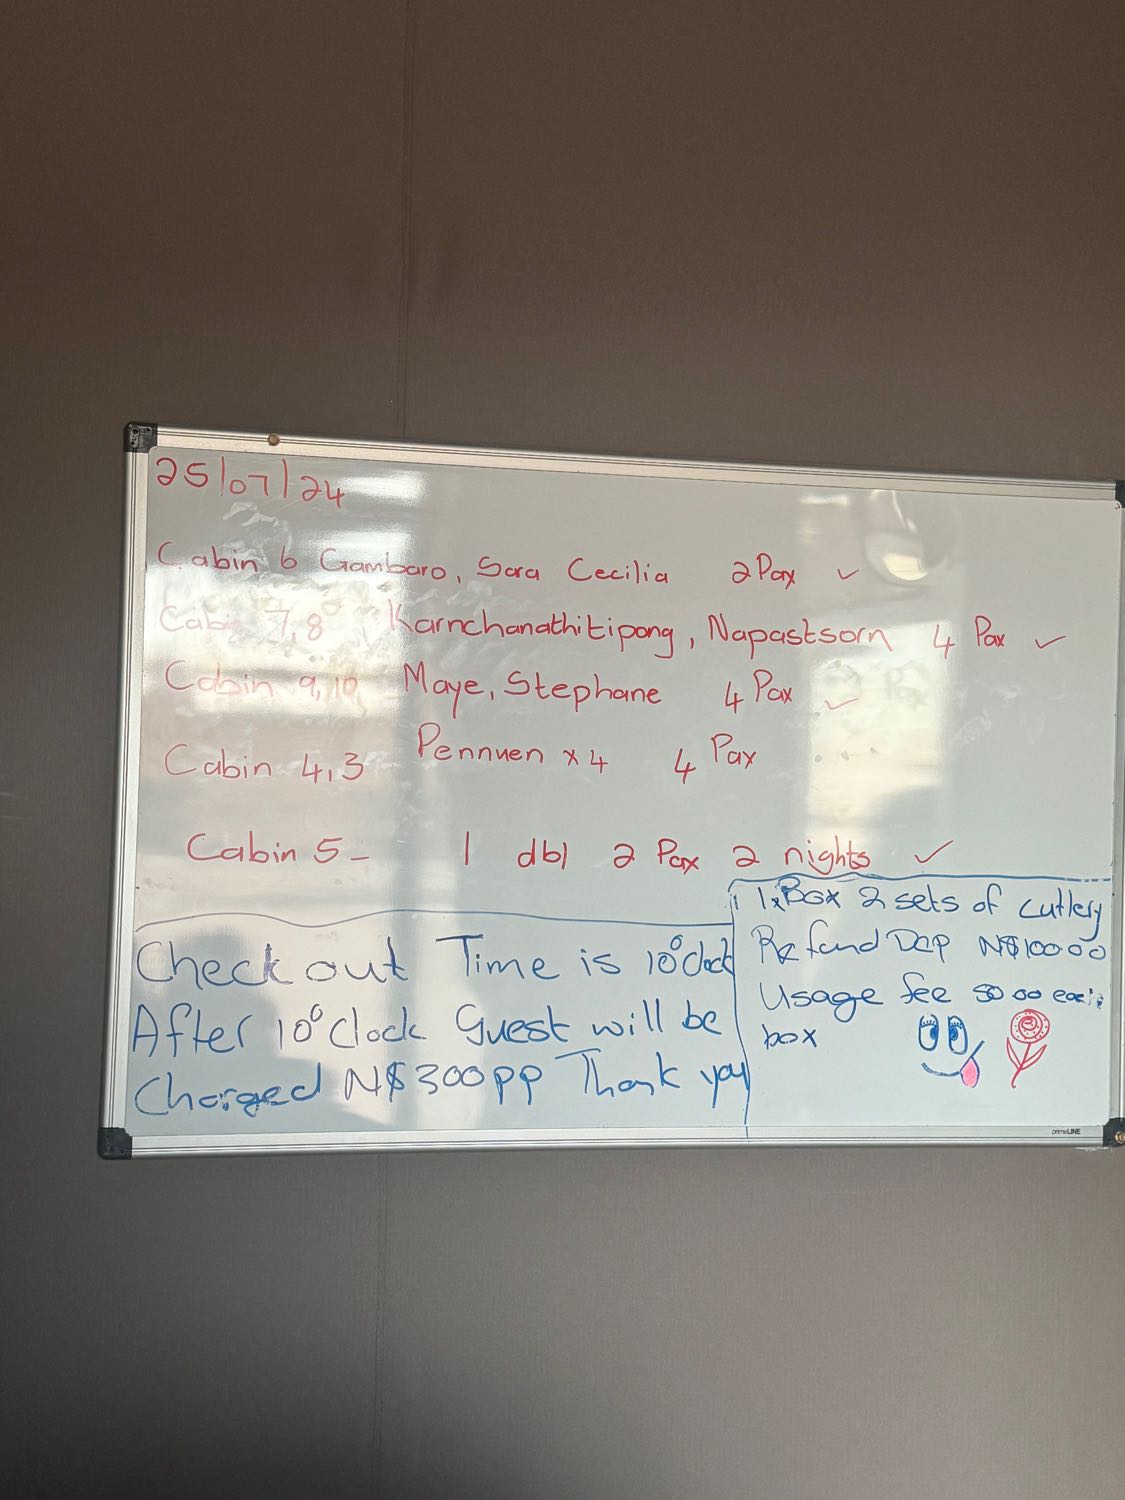 25/07/24
Cabin 6 Gambaro, Sara Cecilia 2 Pax ✓
Cabin 7,8 Karnchanathitipong, Napastsorn 4 Pax ✓
Cabin 9,10 Maye, Stephane 4 Pax ✓
Cabin 4,3 Pennuen x 4 4 Pax
Cabin 5 - 1 dbl 2 Pax 2 nights ✓
Check out Time is 10°Clock
After 10°Clock Guest will be
Charged N$300pp Thank you
1xBox 2 sets of cutlery
Refund Dep N$100.00
Usage fee 50 00 each
box
primeLINE